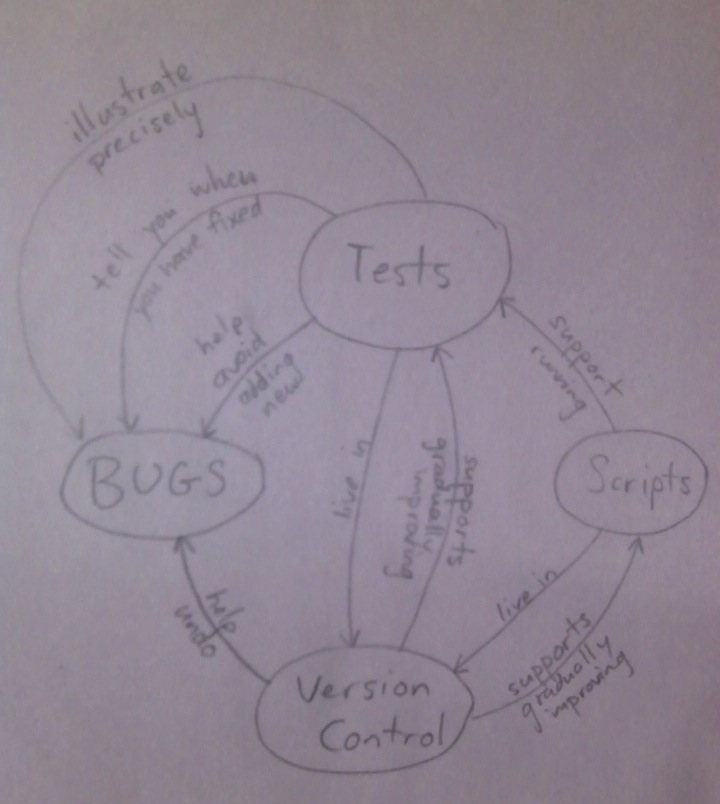 illustrate
precisely
tell you when
you have fixed
Tests
help
avoid
adding
new
support
running
BUGS
live in
supports
gradually
improving
Scripts
help
undo
live in
supports
gradually
improving
Version
Control